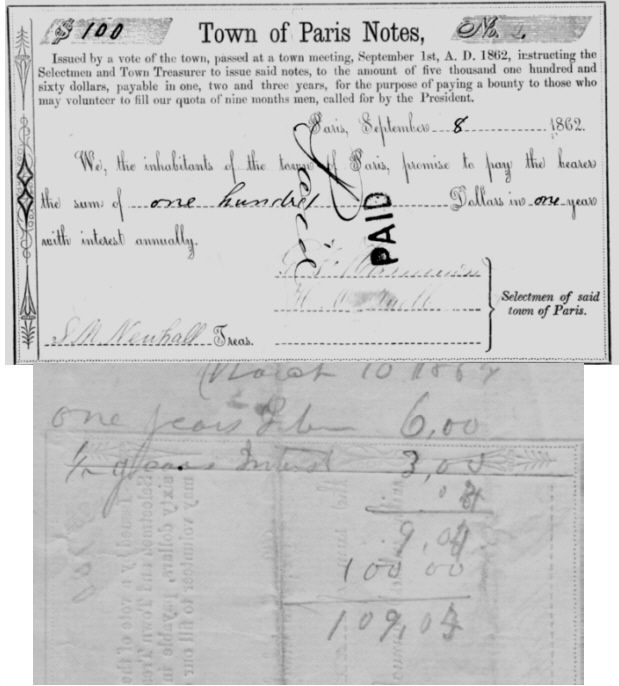 $ 100 Town of Paris Notes, No.
Issued by a vote of the town, passed at a town meeting, September 1st, A. D. 1862, instructing the
Selectmen and Town Treasurer to issue said notes, to the amount of five thousand one hundred and
sixty dollars, payable in one, two and three years, for the purpose of paying a bounty to those who
may volunteer to fill our quota of nine months men, called for by the President.
Paris, September 8 1862.
We, the inhabitants of the town of Paris, promise to pay the bearer
the sum of one hundred Dollars in one year
with interest annually.
PAID
Selectmen of said
town of Paris.
S M Newhall Treas.
March 10 1864
one years Inter 6,00
1/2 years Interest 3,00
100 00